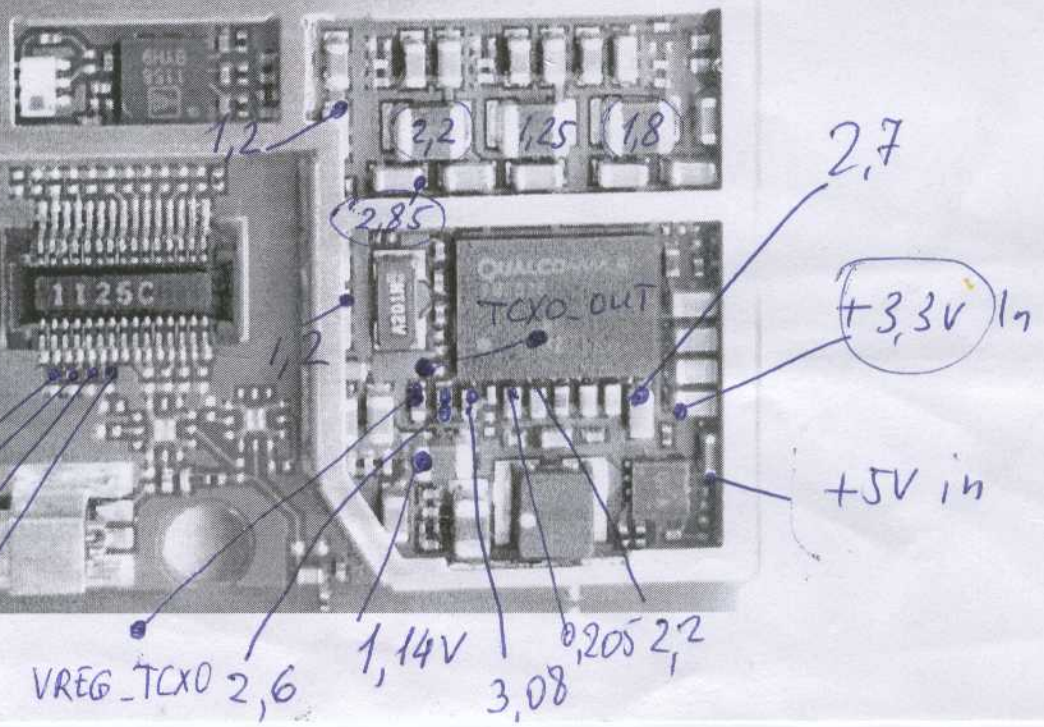 1158
1,2
2,2
1,25
1,8
2,7
2,85
1125C
QUALCOMM
TCXO_OUT
+3,3V In
1,2
+5V in
VREG_TCXO
2,6
1,14V
3,08
0,205
2,2